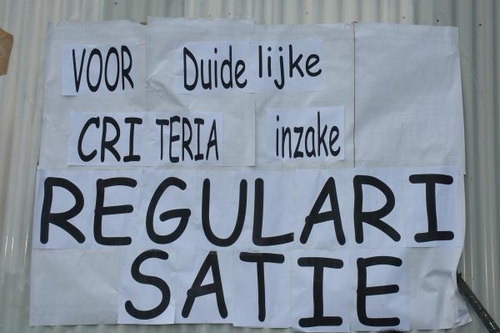 VOOR Duidelijke
CRITERIA inzake
REGULARI
SATIE